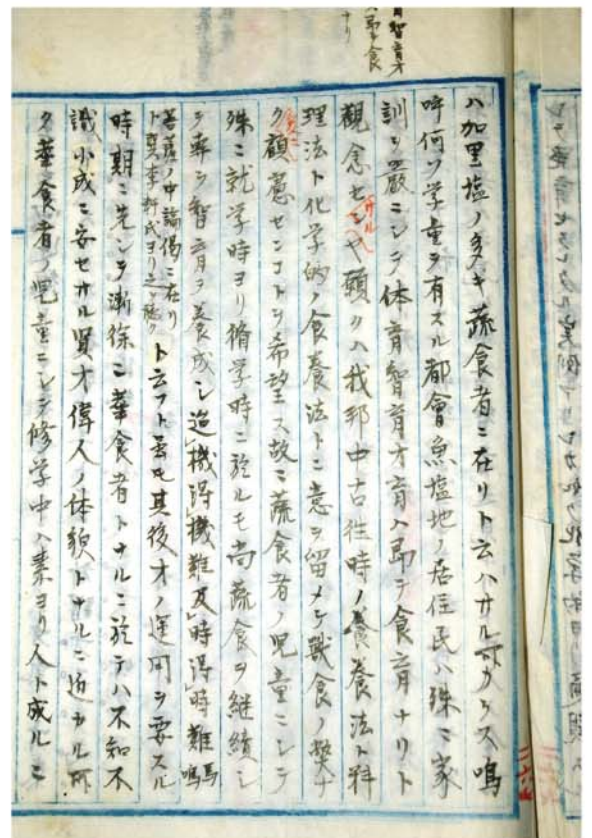 育智育才
ハ即チ食
ナリ
ハ加里塩ノ多キ蔬食者ニ在リト云ハサル可カラス嗚
呼何ソ学童ヲ有スル都會魚塩地ノ居住民ハ殊ニ家
訓ヲ厳ニシテ体育智育才育ハ即チ食育ナリト
観念セシヤ願クハ我邦中古往時ノ養生法ト科
サル
理法ト化学的ノ食養法トニ意ヲ留メテ獣食ノ弊ナ
ク顧慮センコトヲ希望ス故ニ蔬食者ノ児童ニシテ
殊ニ就学時ヨリ脩学時ニ於ルモ尚蔬食ヲ継続シ
テ専ラ智育ヲ養成シ迨機得機難及時得時難
ノ中論偈ニ在リ
ト云フト雖モ其後才ノ運用ヲ要スル
時期ニ先ンテ漸徐ニ葷食者トナルニ於テハ不知不
識小成ニ安セサル賢才偉人ノ体貌トナルニ近カル所
ク葷食者ノ児童ニシテ修学中ハ素ヨリ人ト成ルニ